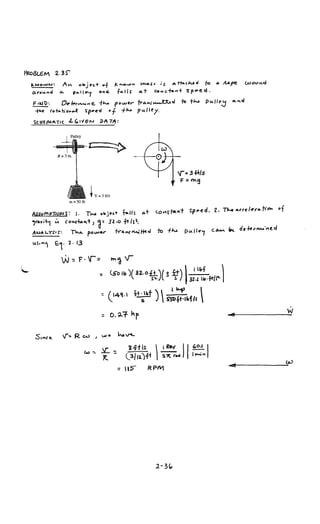 PROBLEM 2.35
KNOWN: An object of known mass is attached to a rope wound
around a pulley and falls at constant speed.
FIND: Determine the power transmitted to the pulley and
the rotational speed of the pulley.
SCHEMATIC & GIVEN DATA:
Pulley
ω
V = 3 ft/s
F = mg
m = 50 lb
ASSUMPTIONS: 1. The object falls at constant speed. 2. The acceleration of
gravity is constant; g = 32.0 ft/s².
ANALYSIS: The power transmitted to the pulley can be determined
using Eq. 2.13
Ẇ = F·V = mg V
= (50 lb)(32.0 ft/s²)(3 ft/s) | 1 lbf / 32.2 lb·ft/s² |
= (149.1 ft·lbf/s) | 1 hp / 550 ft·lbf/s |
= 0.27 hp
Ẇ
Since V = Rω, we have
ω = V/R = 3 ft/s / (3/12) ft | 1 rev / 2π rad | | 60 s / 1 min |
= 115 RPM
ω
2-36